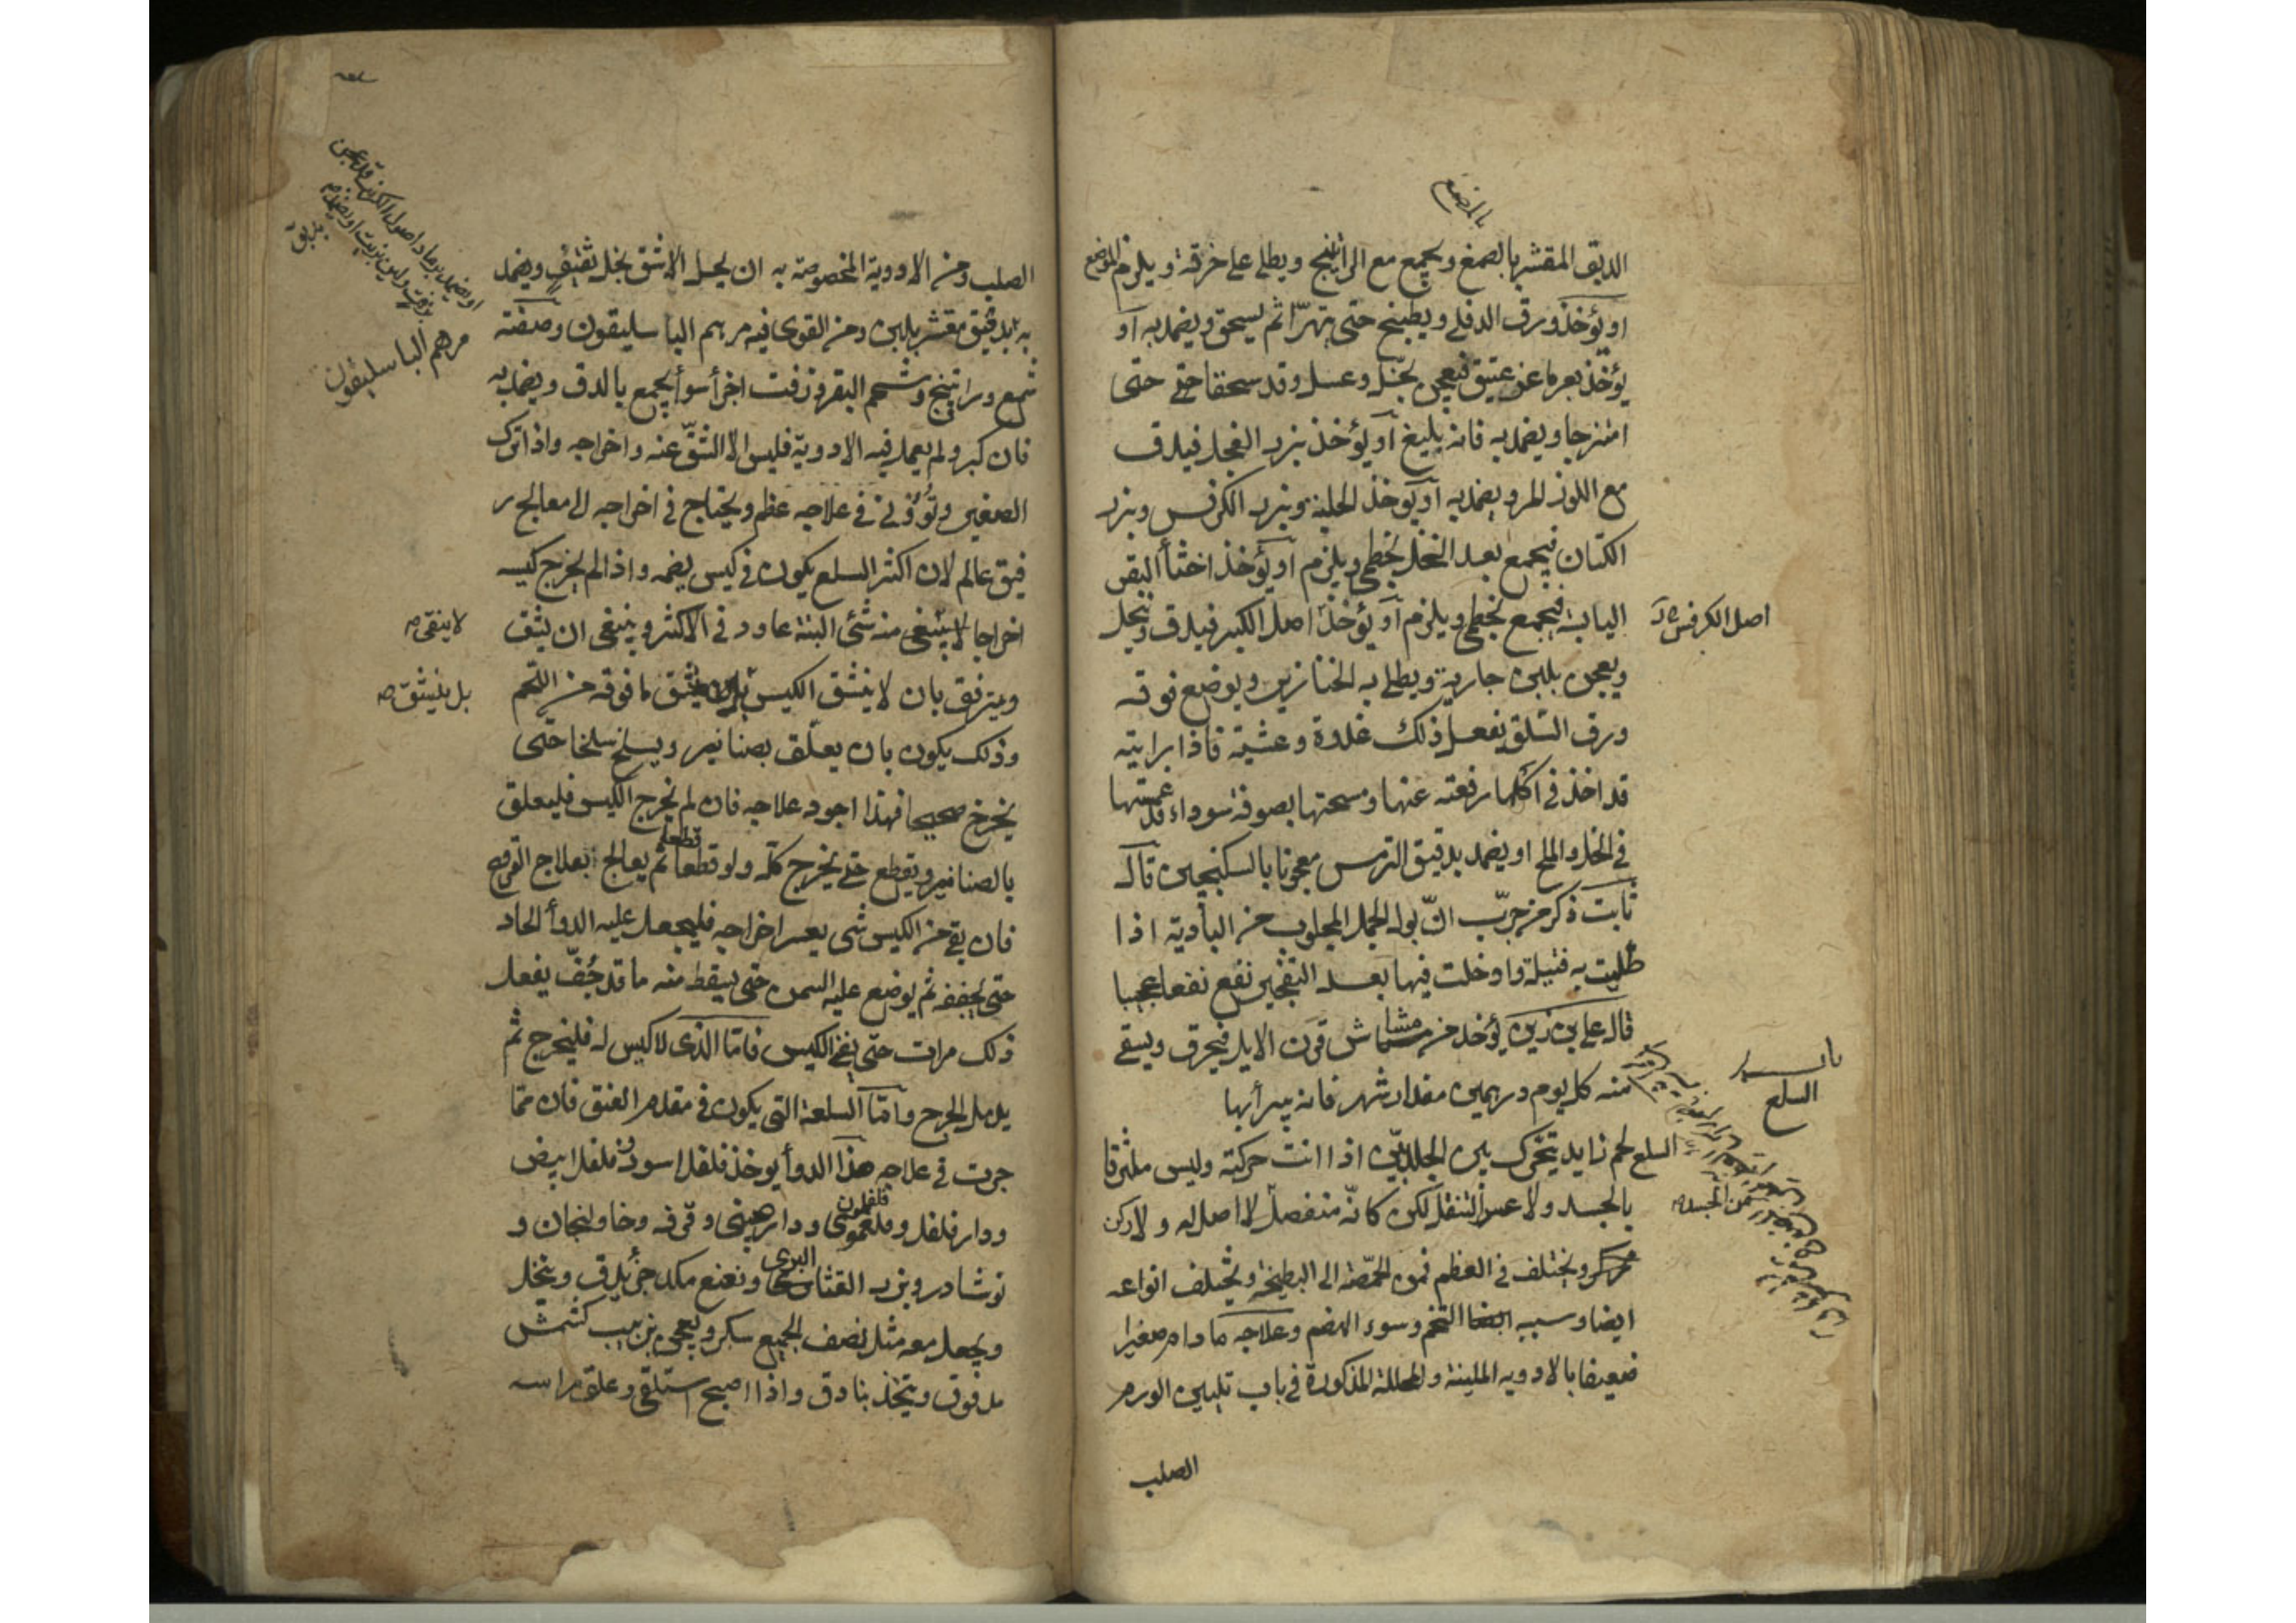 بالمضع
الدبق المقشر بالصمغ ويجمع مع الراتينج ويطلى على خرقة ويلزم الموضع
او يؤخذ ورق الدفلى ويطبخ حتى يتهرّأ ثم يسحق ويضمد به او
يؤخذ بعر ماعز عتيق فيعجن بخل وعسل وقد سحقا حتى
امتزجا ويضمد به فانه بليغ او يؤخذ بزر الفجل فيدق
مع اللوز المر ويضمد به او يؤخذ الحلبة وبزر الكرفس وبزر
الكتان فيجمع بعد النخل بخطمى ويلزم او يؤخذ اختأ البقر
اليابسة فيجمع بخطمى ويلزم او يؤخذ اصل الكبر فيدق وينخل
اصل الكرفس
ويعجن بلبن جارية ويطلى به الخنازير ويوضع فوقه
ورق السلق يفعل ذلك غدوة وعشية فاذا رايته
قد اخذ فى اكلها رفعته عنها ومسحتها بصوفة سوداء قد غمستها
فى الخل والملح او يضمد بدقيق الترمس معجونا بالسكنجبين قال
ثابت ذكر من جرّب انّ بول الجمل المجلوب من البادية اذا
طليت به فتيلة وادخلت فيها بعد التفجير نفع نفعا عجيبا
قال على بن زين يؤخذ من مشاش قرن الايل فيحرق ويسقى
منه كل يوم درهمين مقدار شهر فانه يبرأبها
باب
السلع
السلع لحم زايد يتحرك بين الجلدين اذا انت حركته وليس ملتزقا
بالجسد ولا عسر التنقل لكن كانّه منفصل لا اصل له ولا ركن
من الجسد
ويختلف فى العظم فمن الحمّصة الى البطيخة ويختلف انواعه
ايضا وسببه التخم وسوء الهضم وعلاجه ما دام صغيرا
ضعيفا بالادويه الملينة والمحللة المذكورة فى باب تليين الورم
الصلب
الصلب ومن الادوية المخصوصة به ان يحل الاشق بخل ثقيف ويضمد
به بدقيق مقشر بلبن ومن القوى فيه مرهم الباسليقون وصفته
مرهم الباسليقون
شمع وراتينج وشحم البقر وزفت اجزأ سوأ يجمع بالدق ويضمد به
فان كبر ولم يعمل فيه الادوية فليس الا الشقّ عنه واخراجه واذا ترك
الصغير وتُوُوْنى فى علاجه عظم ويحتاج فى اخراجه الى معالج ر
فيق عالم لان اكثر السلع يكون فى كيس يضمه واذا لم يخرج كيسه
اخراجا لا يبقى منه شئى البتة عاود فى الاكثر وينبغى ان يشق
لا يبقى صح
ويترفق بان لا ينشق الكيس بل يشق ما فوقه من اللحم
بل ينشق صح
وذلك يكون بان يعلّق بصنانير ويسلخ سلخا حتى
يخرج صحيحا فهذا اجود علاجه فان لم يخرج الكيس فليعلق
بالصنانير ويقطع حتى يخرج كلّه ولو قطعا قطعا ثم يعالج بعلاج القروح
فان بقى من الكيس شى يعسر اخراجه فليجعل عليه الدوأ الحاد
حتى يجففه ثم يوضع عليه السمن حتى يسقط منه ما قد جُفّ يفعل
ذلك مرات حتى يفنى الكيس فامّا الذى لا كيس له فليخرج ثم
يدمل الجرح وامّا السلعة التى يكون فى مقدم العنق فان ممّا
جربت فى علاجه هذا الدوأ يوخذ فلفل اسود وفلفل ابيض
ودار فلفل وفلفلمون ودارصينى وقرفه وخاولنجان و
نوشادر وبزر القثا البرى ونعنع مكد جزأ يدق وينخل
ويجعل معه مثل نصف الجميع سكر ويعجن بزبيب كشمش
مدقوق ويتخذ بنادق واذا اصبح استلقى وعلق راسه